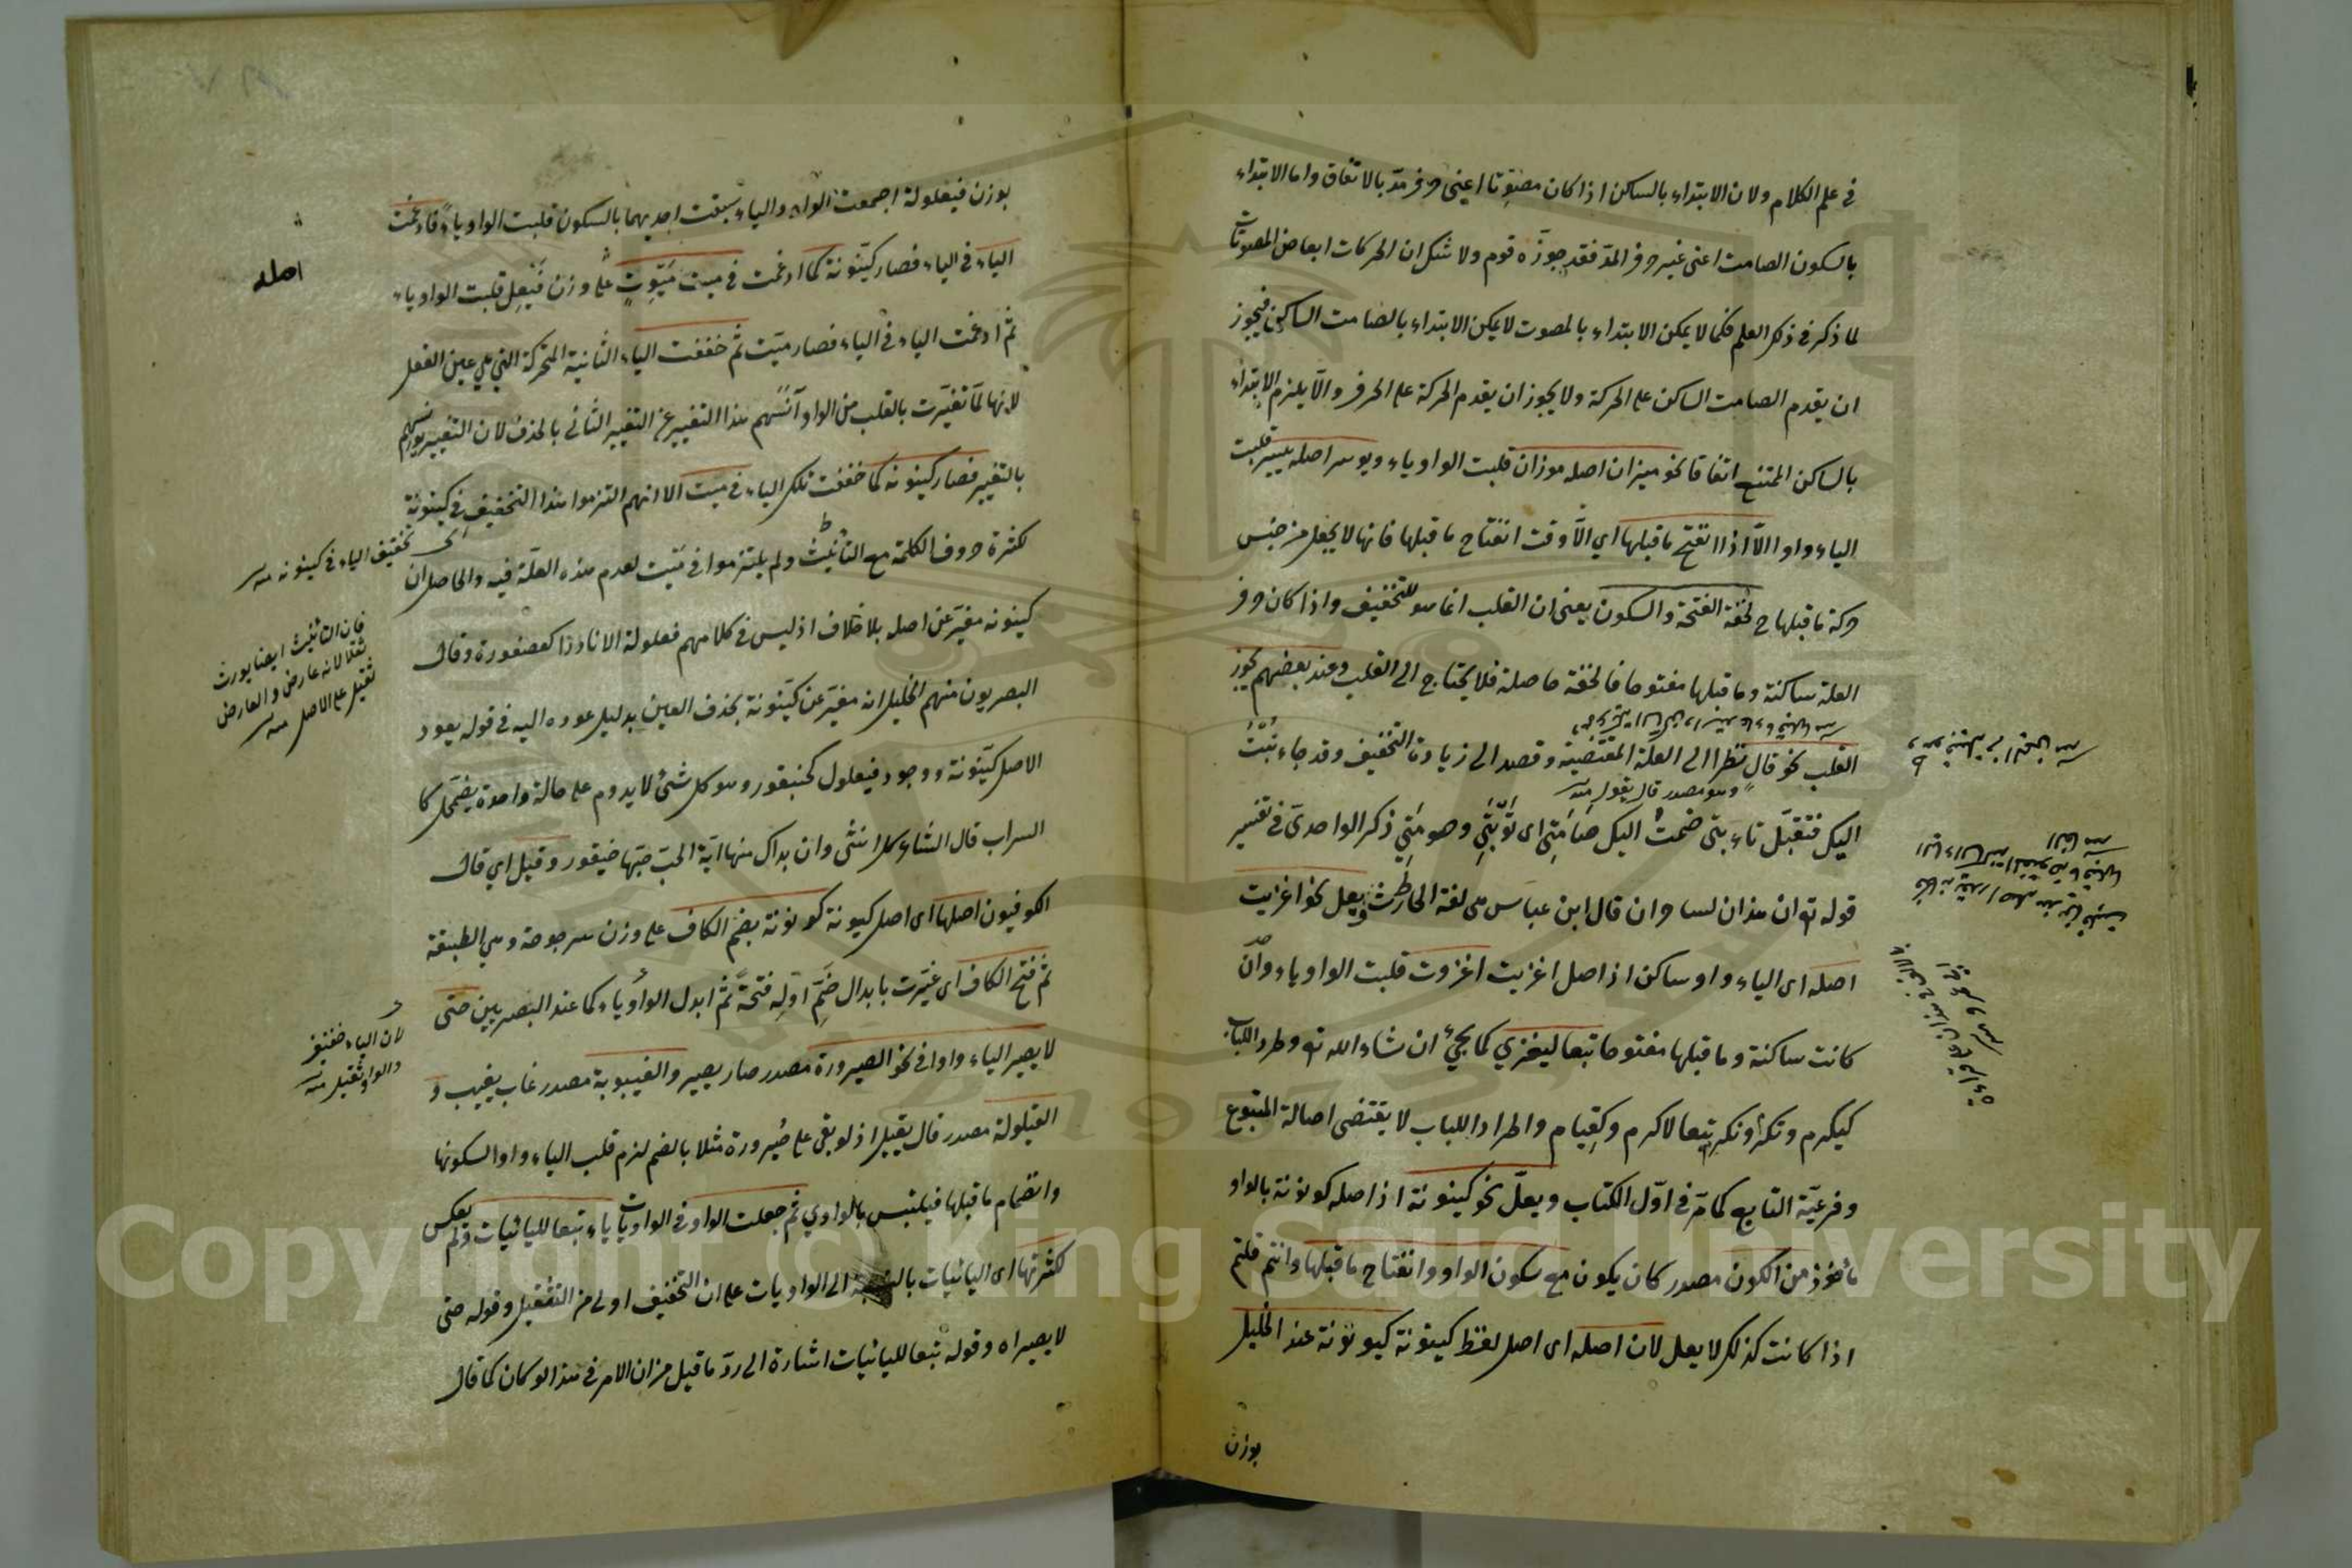 في علم الكلام ولان الابتداء بالساكن اذا كان مصوتا اعني حرف مد بالاتفاق واما الابتداء
بالسكون الصامت اعني غير حرف المد فقد جوزه قوم ولا شك ان الحركات ابعاض المصوتات
لما ذكر في ذلك العلم فكما لا يمكن الابتداء بالمصوت لا يمكن الابتداء بالصامت الساكن فيجوز
ان يقدم الصامت الساكن على الحركة ولا يجوز ان يقدم الحركة على الحرف والّا يلزم الابتداء
بالساكن الممتنع اتفاقا نحو ميزان اصله موزان قلبت الواو ياء ويوسر اصله ييسر قلبت
الياء واوا الّا اذا انفتح ما قبلها اي الّا وقت انفتاح ما قبلها فانها لا يجعل من جنس
حركة ما قبلها ح لخفة الفتحة والسكون يعني ان القلب انما هو للتخفيف واذا كان حرف
العلة ساكنة وما قبلها مفتوحا فالخفة حاصلة فلا يحتاج الى القلب وعند بعضهم يجوز
القلب نحو قال نظرا الى العلة المقتضية وقصد الى زيادة التخفيف وقد جاء تبت
وهو مصدر قال يقول منه
اليك فتقبّل تاء بتي ضمت اليك صامتي اى توبتي وصومتي ذكر الواحدى في تفسير
قوله تع ان هذان لساحران قال ابن عباس هي لغة الحارث ويعل نحو اغزيت
اصله اى الياء واو ساكن اذ اصل اغزيت اغزوت قلبت الواو ياء وان
كانت ساكنة وما قبلها مفتوحا تبعا ليغزي كما يجئ ان شاء الله تع وطرد اللباب
كيكرم وتكرم ونكرم تبعا لاكرم وكقيام واطراد اللباب لا يقتضى اصالة المتبوع
وفرعيّة التابع كما مر في اوّل الكتاب ويعلّ نحو كينونة اذ اصله كونونة بالواو
مأخوذ من الكون مصدر كان يكون مع سكون الواو وانفتاح ما قبلها وانتم قلتم
اذا كانت كذلك لا يعل لان اصله اى اصل لفظ كينونة كيونونة عند الخليل
بوزن
بوزن فيعلولة اجتمعت الواو والياء سبقت احديهما بالسكون قلبت الواو ياء فادغمت
الياء في الياء فصار كيّنونة كما ادغمت في ميت ميوت على وزن فيعل قلبت الواو ياء
ثم ادغمت الياء في الياء فصار ميّت ثم خففت الياء الثانية المتحركة التي هي عين الفعل
لانها لمّا تغيّرت بالقلب من الواو آنسهم هذا التغيير عن التغيير الثاني بالحذف لان التغيير يونسهم
بالتغيير فصار كينونه كما خففت تلك الياء في ميت الا انهم التزموا هذا التخفيف في كينونة
لكثرة حروف الكلمة مع التأنيث ولم يلتزموا في ميّت لعدم هذه العلّة فيه والحاصل ان
كينونه مغيّر عن اصله بلا خلاف اذ ليس في كلامهم فعلولة الا نادرا كصعفورة وقال
البصريون منهم الخليل انه مغيّر عن كيّنونة بحذف العين بدليل عوده اليه في قوله يعود
الاصل كيّنونة ووجود فيعلول كخيتقور وهو كل شئ لا يدوم على حالة واحدة يضمحل كا
السراب قال الشاعر كل انثى وان بدا لك منها آية الحب حبّها خيتقور وقيل اي قال
الكوفيون اصلها اى اصل كيونة كونونة بضم الكاف على وزن سرجوجة وهي الطبيعة
ثم فتح الكاف اى غيّرت بابدال ضمّ اوله فتحة ثم ابدل الواو ياء كما عند البصريين حتى
لا يصير الياء واوا في نحو الصيرورة مصدر صار يصير والغيبوبة مصدر غاب يغيب و
القيلولة مصدر قال يقيل اذ لو بقى على ضيرورة مثلا بالضم لزم قلب الياء واوا لسكونها
وانضمام ما قبلها فيلتبس بالواوي ثم جعلت الواو في الواويات ياء تبعا لليائيات ولم يعكس
لكثرتها اى اليائيات بالنسبة الى الواويات على ان التخفيف اولى من التثقيل وقوله حتى
لا يصير اه وقوله تبعا لليائيات اشارة الى ردّ ما قيل من ان الامر في هذا لو كان كما قال
اصله
اى تخفيف الياء في كينونه منه
فان التأنيث ايضا يورث
ثقلا لانه عارض والعارض
ثقيل على الاصل منه
لان الياء خفيف
والواو ثقيل منه
Copyright © King Saud University